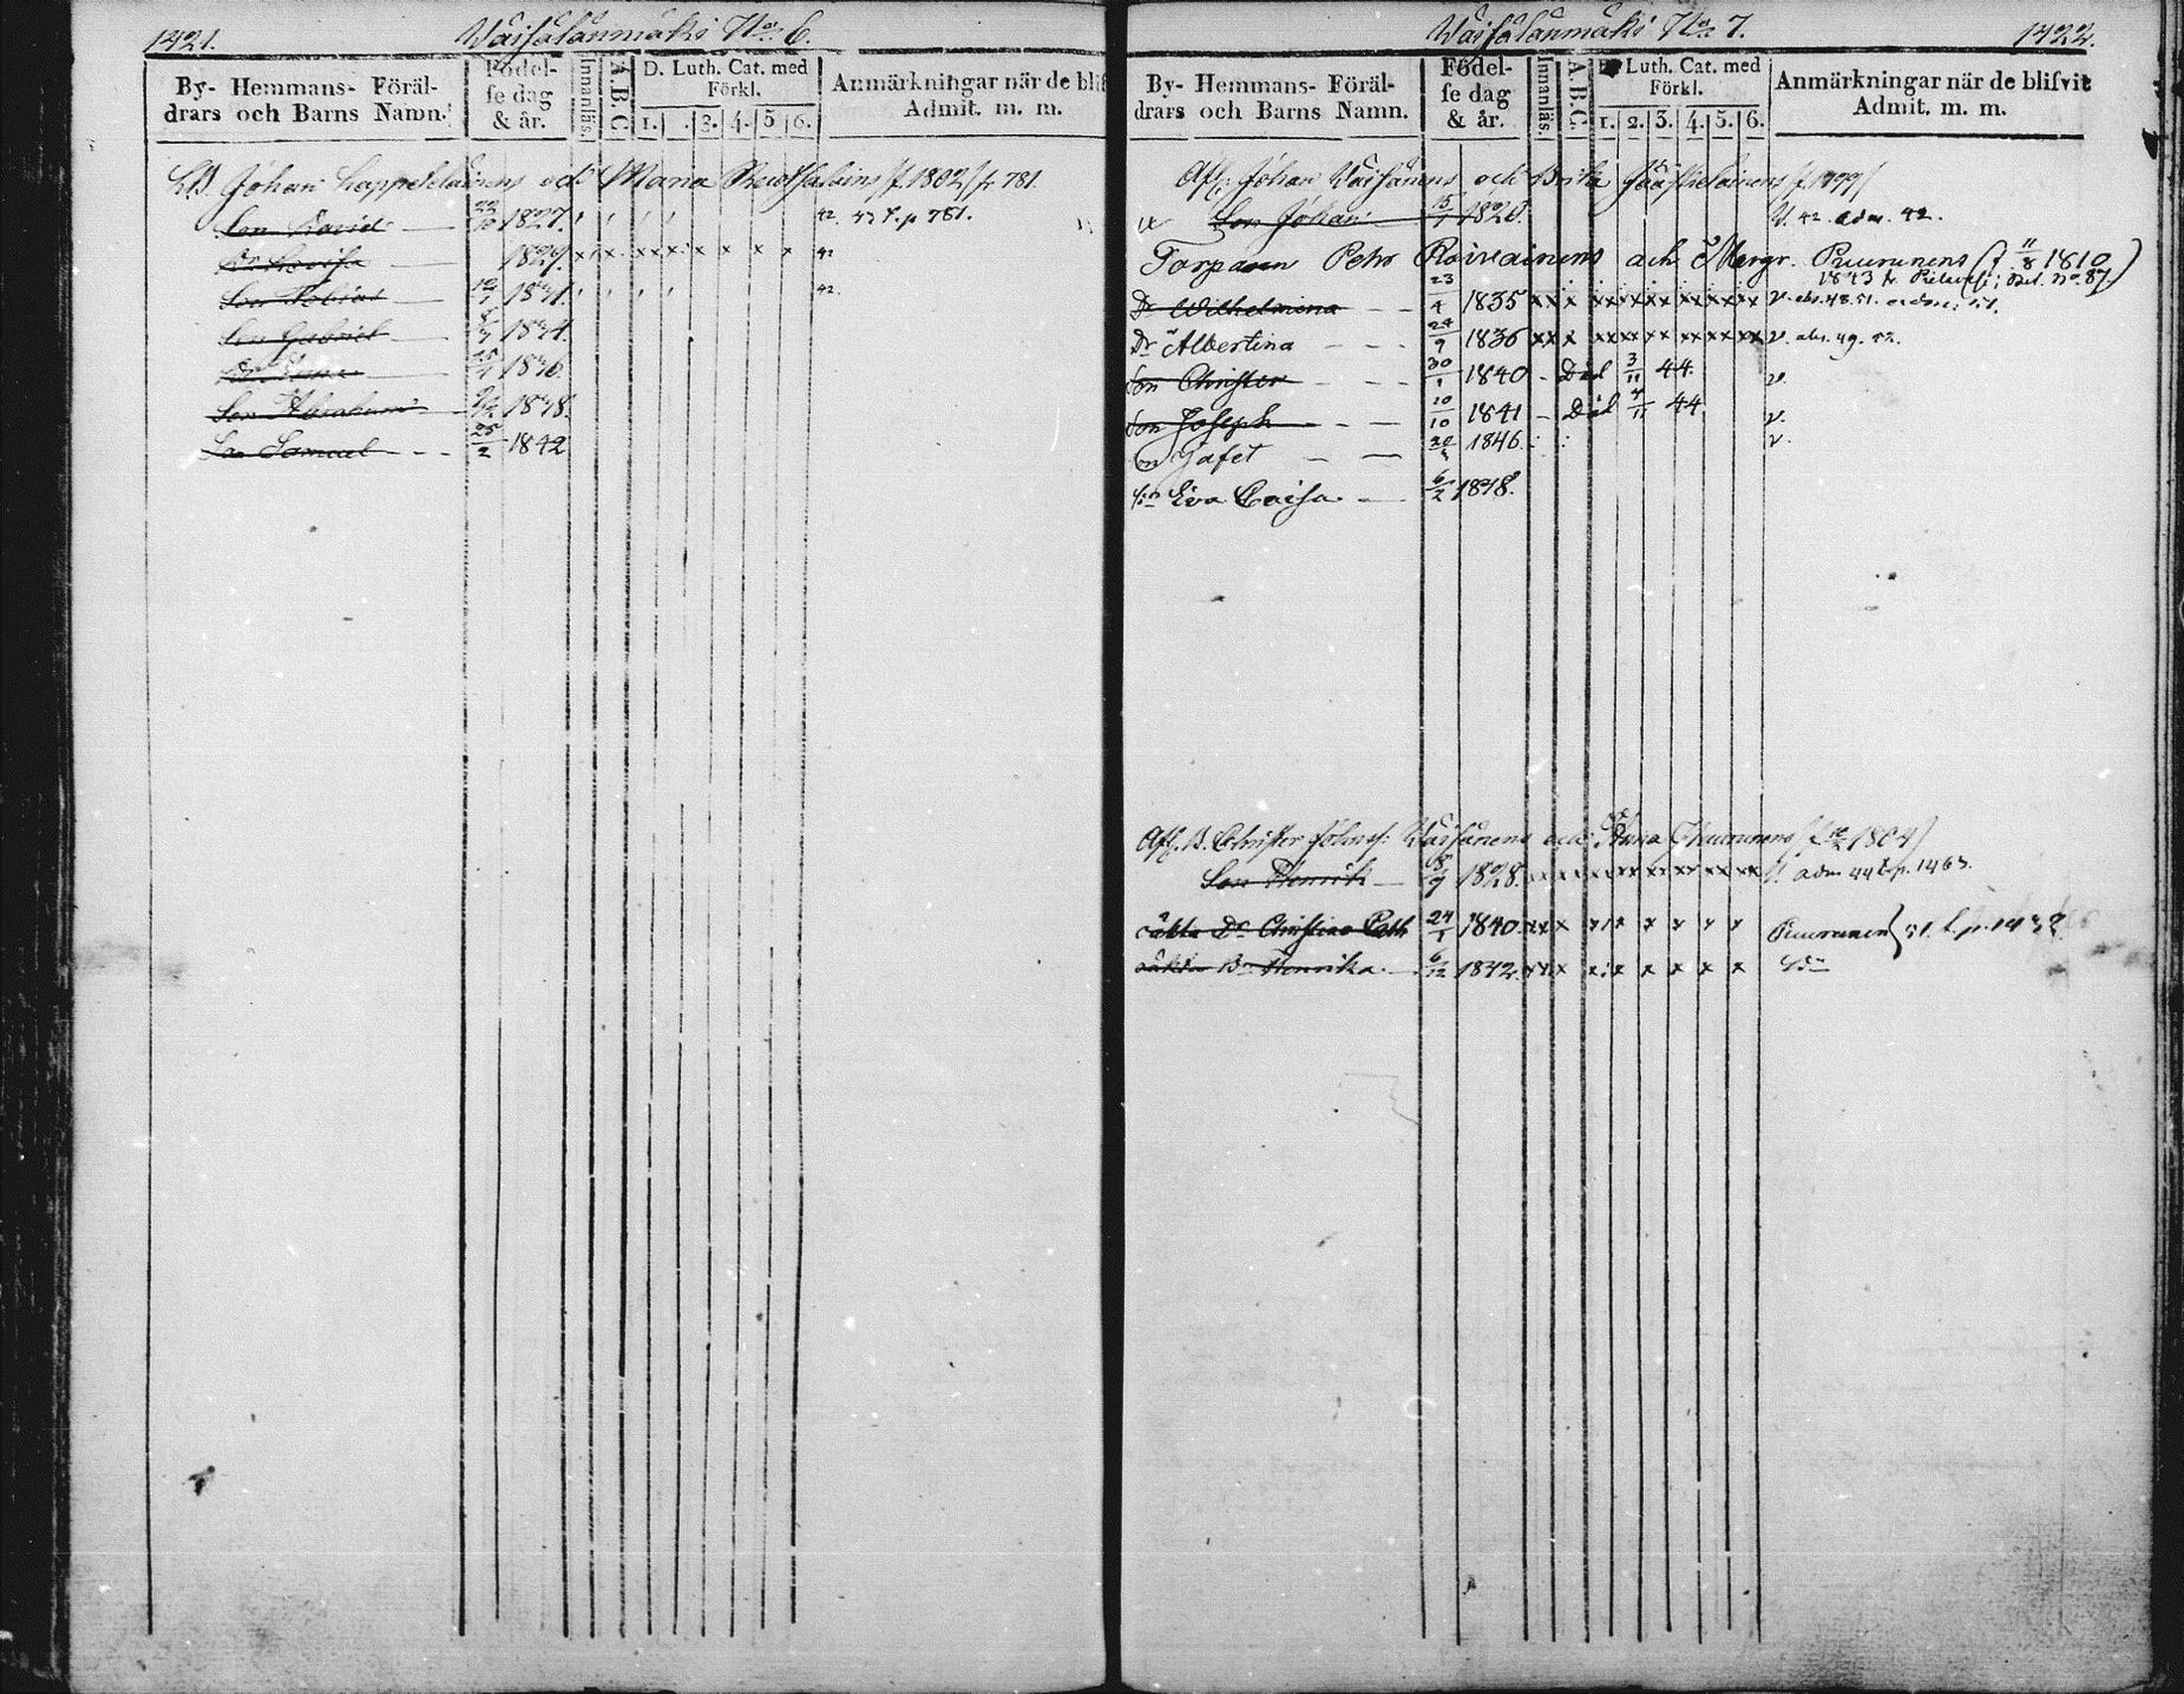 1421.
Wäisälänmäki No 6.
By- Hemmans- Föräl-
drars och Barns Namn.
Födel-
se dag
& år.
Innanläs.
A.B.C.
D. Luth. Cat. med
Förkl.
1. . 3. 4. 5 6.
Anmärkningar när de blif
Admit. m. m.
Johan Lappeteläinens och Maria /f. 1802/ fr. 781.
Son David 22/10 1827. 42. 43 t. p 781.
Dr Lovisa 1829. x x x x x x x x x 42
Son Tobias 1831. 42.
Son Gabriel 1834.
1836.
Son Abraham 1838.
Son Samuel 25/2 1842
Wäisälänmäki No 7.
1422.
By- Hemmans- Föräl-
drars och Barns Namn.
Födel-
se dag
& år.
Innanläs.
A.B.C.
Luth. Cat. med
Förkl.
1. 2. 3. 4. 5. 6.
Anmärkningar när de blifvit
Admit. m. m.
Johan Wäisänens och Brita Jääskeläinens /f. 1799/
Son Johan 15/1 1820. V. 42. adm. 42.
Torparen Petr Roivainens och Margr. Puurunens (f 11/8 1810)
1843 fr. Pielavesi; Bet. No 87.
Dr Wilhelmina 23/4 1835 xx x xx xx xx xx xx xx v. abs. 48. 51.
Dr Albertina 24/9 1836 xx x xx xx xx xx xx xx v. abs. 49. 52.
Son Christer 30/1 1840 - Död 3/11 44. v.
Son Joseph 10/10 1841 - Död 4/11 44 v.
Son Jafet 1846. v.
Eva Caisa 6/2 1848.
Christer Johans: Wäisänens och Anna 1804/
Son Henrik 1828. adm 44 t. p. 1463.
oäkta Dr Christina Cath 24/ 1840. xx x x x x x x x Puurunen} 51. t. p. 1432
oäkta Dr Henrika 6/12 1842. xx x x x x x x x